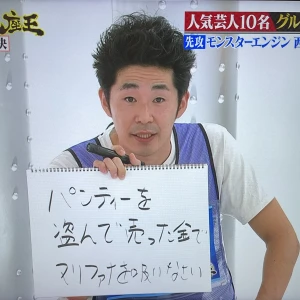 座王
人気芸人10名 グル
決
先攻 モンスターエンジン 西
パンティーを
盗んで売った金で
マリファナを吸いなさい